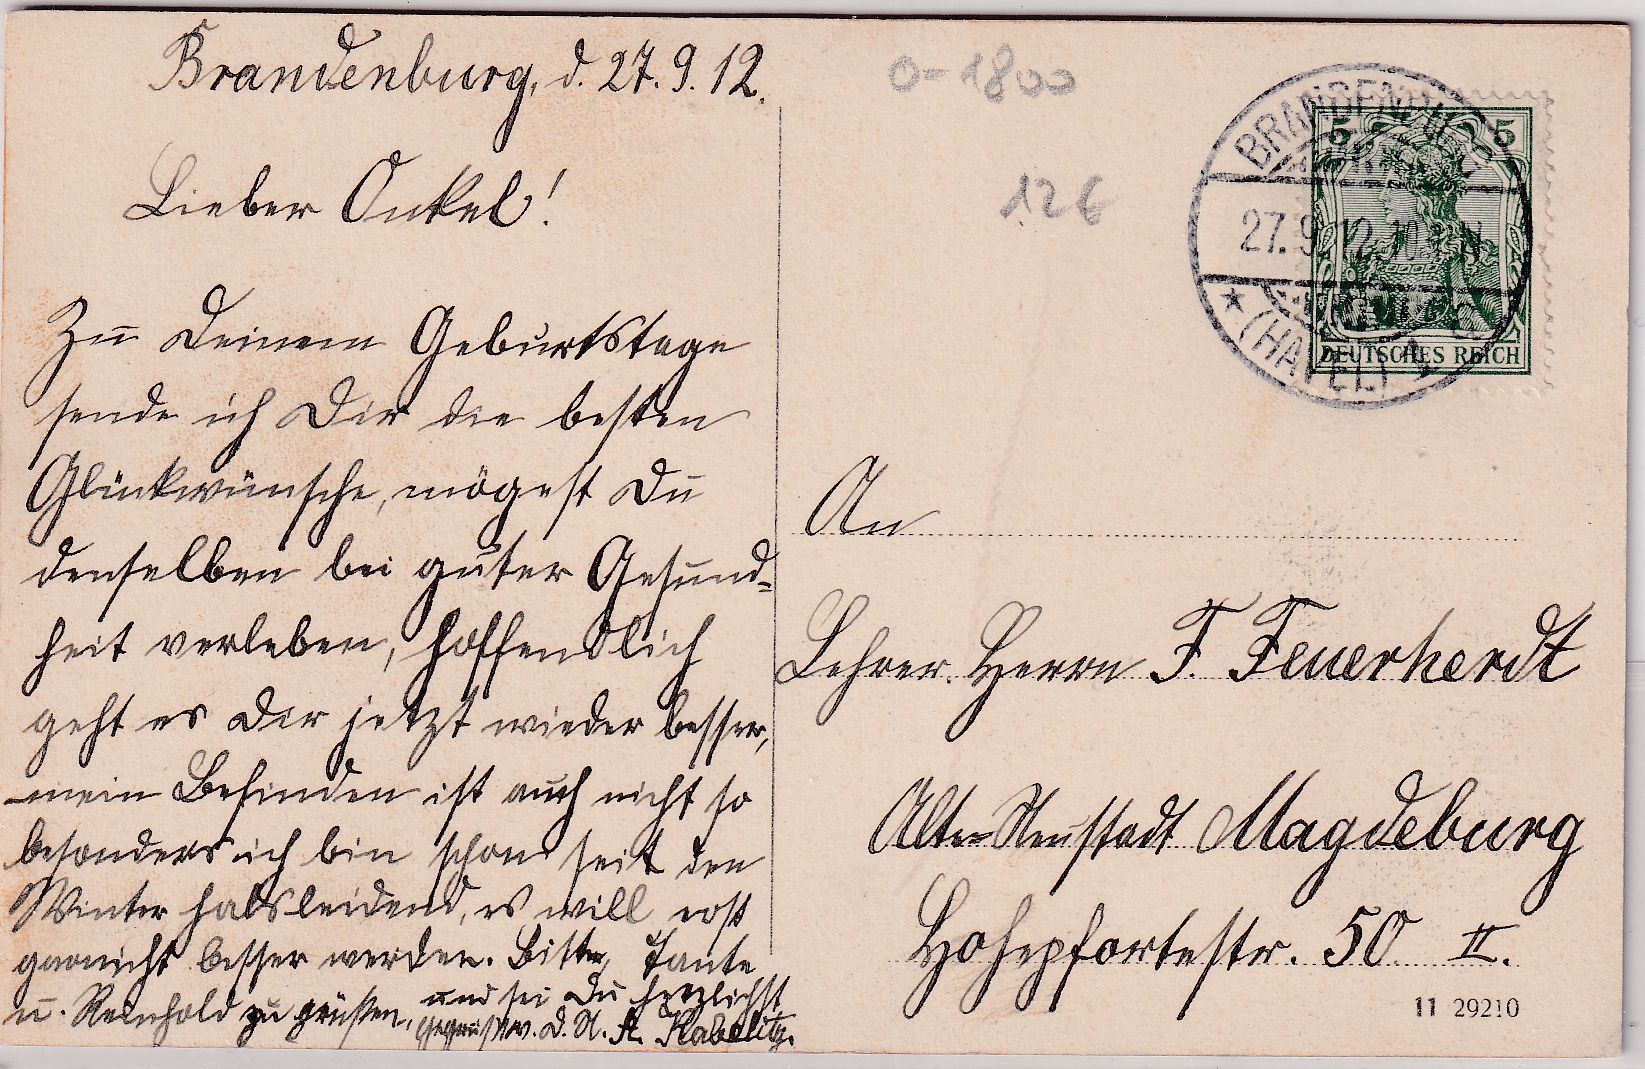 Brandenburg, d. 27.9.12.
Lieber Onkel!
Zu Deinem Geburtstage
sende ich Dir die besten
Glückwünsche, mögest Du
denselben bei guter Gesund=
heit verleben, hoffendlich
geht es Dir jetzt wieder besser,
mein Befinden ist auch nicht so
besonders ich bin schon seit den
Winter halsleidend, es will erst
garnicht besser werden. Bitte, Tante
u. Reinhold zu grüßen, und sei Du herzlichst
gegrüßt v. D. N. A. Kabelitz.
0-1800
12€
BRANDENBURG
27.9.12.10-11 N
★ (HAVEL) 1
5 5
DEUTSCHES REICH
An
Lehrer Herrn F. Feuerherdt
Alte-Neustadt Magdeburg
Hohepfortestr. 50 II.
11 29210